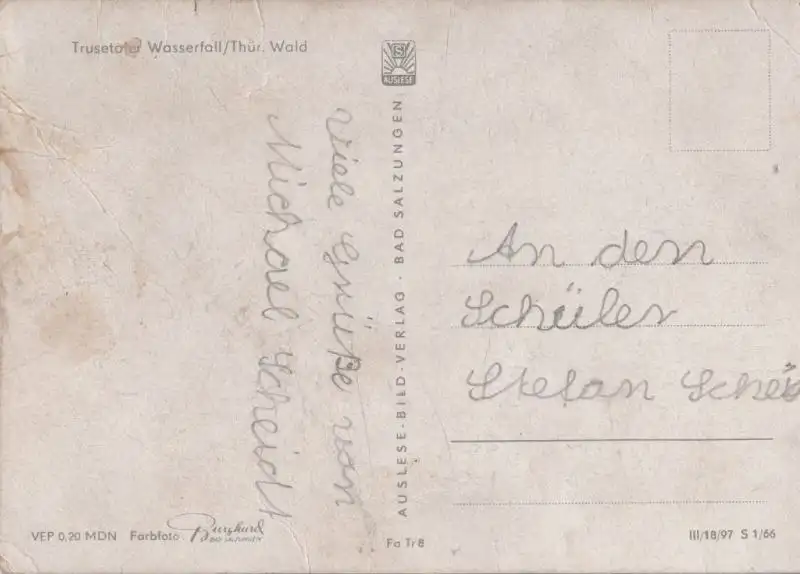 Trusetaler Wasserfall/Thür. Wald
S
AUSLESE
Viele Grüße von
Michael Scheidt
AUSLESE-BILD-VERLAG · BAD SALZUNGEN
An den
Schüler
Stefan
VEP 0,20 MDN Farbfoto Burghard
BAD SALZUNGEN
Fa Tr 8
III/18/97 S 1/66